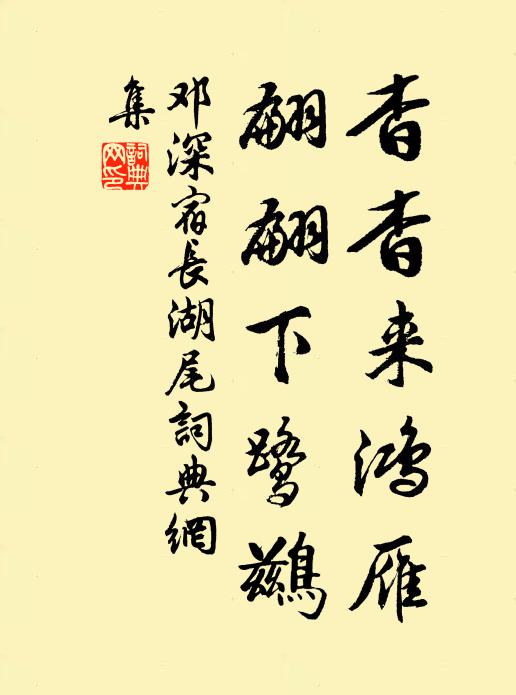 杳杳来鸿雁
翩翩下鹭鹚
邓深宿長湖尾詞典網
集
詞典網印